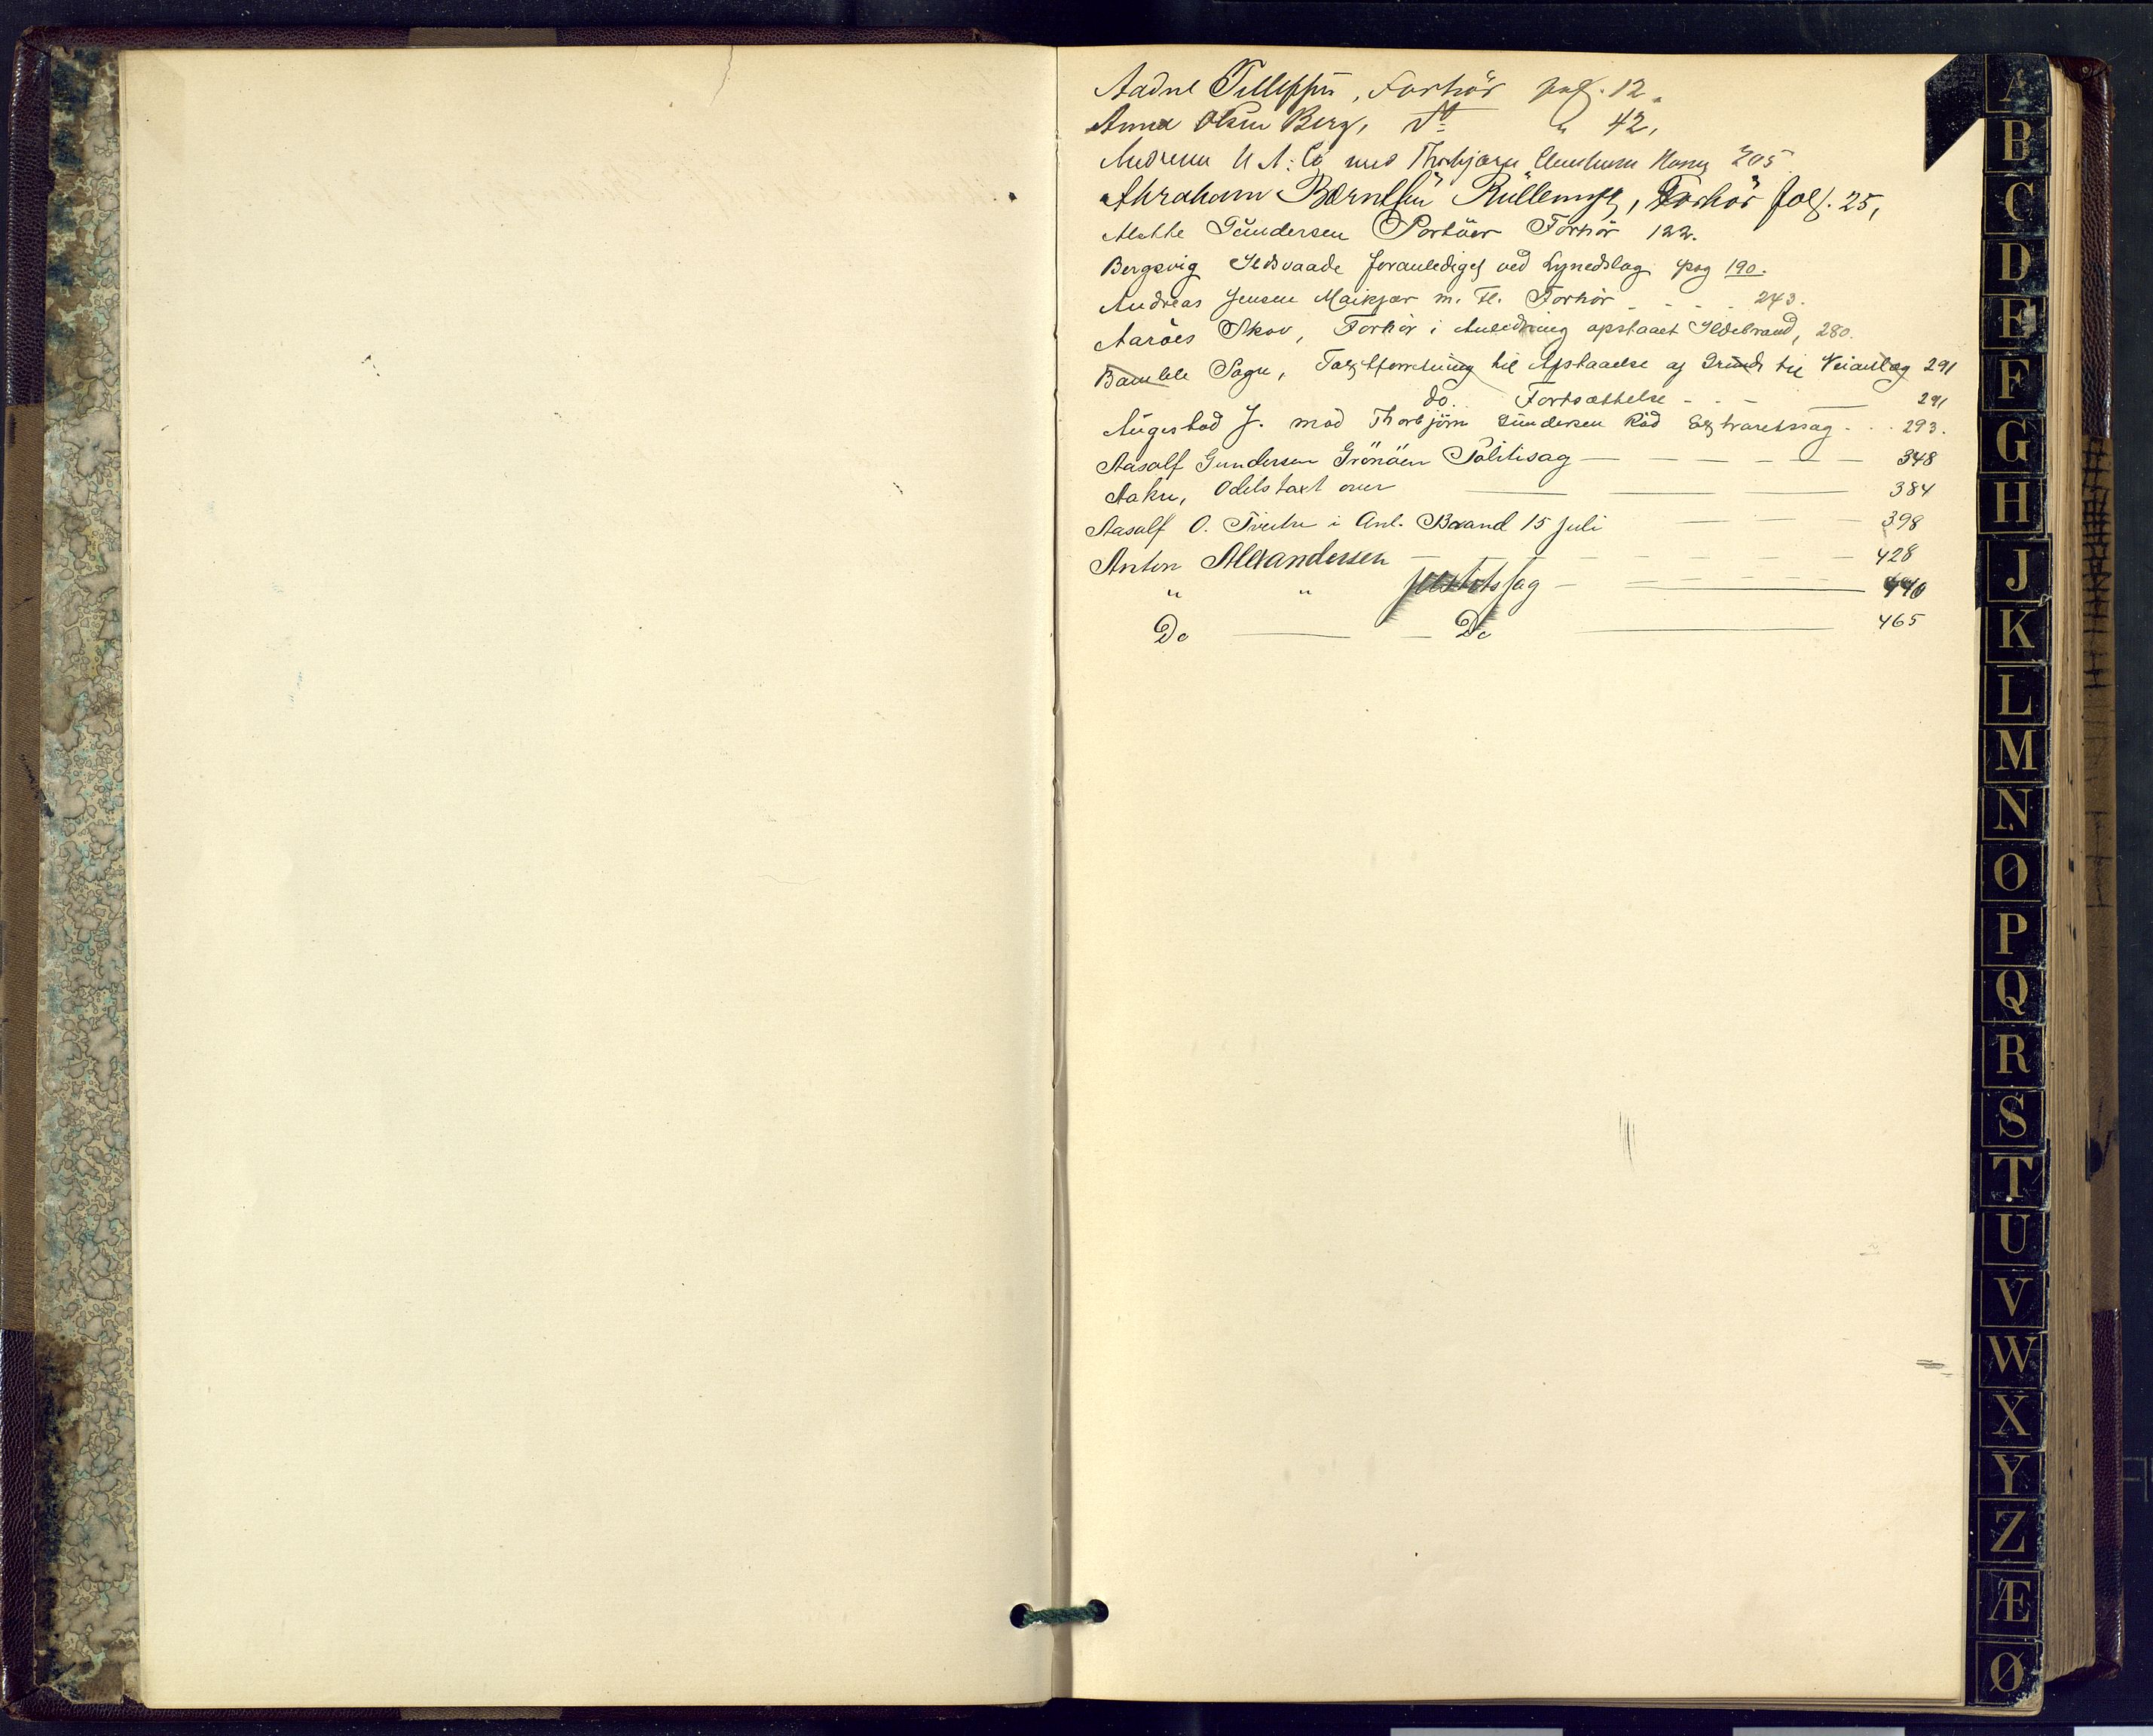 Aadne Tellefsen, Forhör pag. 12.
Anna Olsen Berg, dto " 42,
N. A: Co mod Thorbjørn 205
Abraham Berntsen, Forhör fol. 25,
Gündersen Portöer Forhör 122.
Bergsvig Ildsvaade foranlediget ved Lynedslag pag 190.
Andreas Jensen Maikjær m. Fl. Forhör - - - - 243.
Aaröes Skov, Forhör i Anledning opstaaet Ildebrand, 280.
Bamble Sogn, til Afstaaelse af Grund til Veianlæg 291
do. Fortsættelse - - - 291
Augestad J. mod Thorbjörn Gündersen Röd Extraretssag - - - 293.
Aasolf Gundersen Grönåen Politisag — — — — — — 348
Aakre, Odelstaxt over — — — 384
Aasolf O. Tveten i Anl. Brand 15 Juli — — — 398
Anton Alexandersen — — — — — — 428
" " Justitssag — — — 440
Do — — Do — 465
A
B
C
D
E
F
G
H
J
K
L
M
N
O
P
Q
R
S
T
U
V
W
X
Y
Z
Æ
Ø